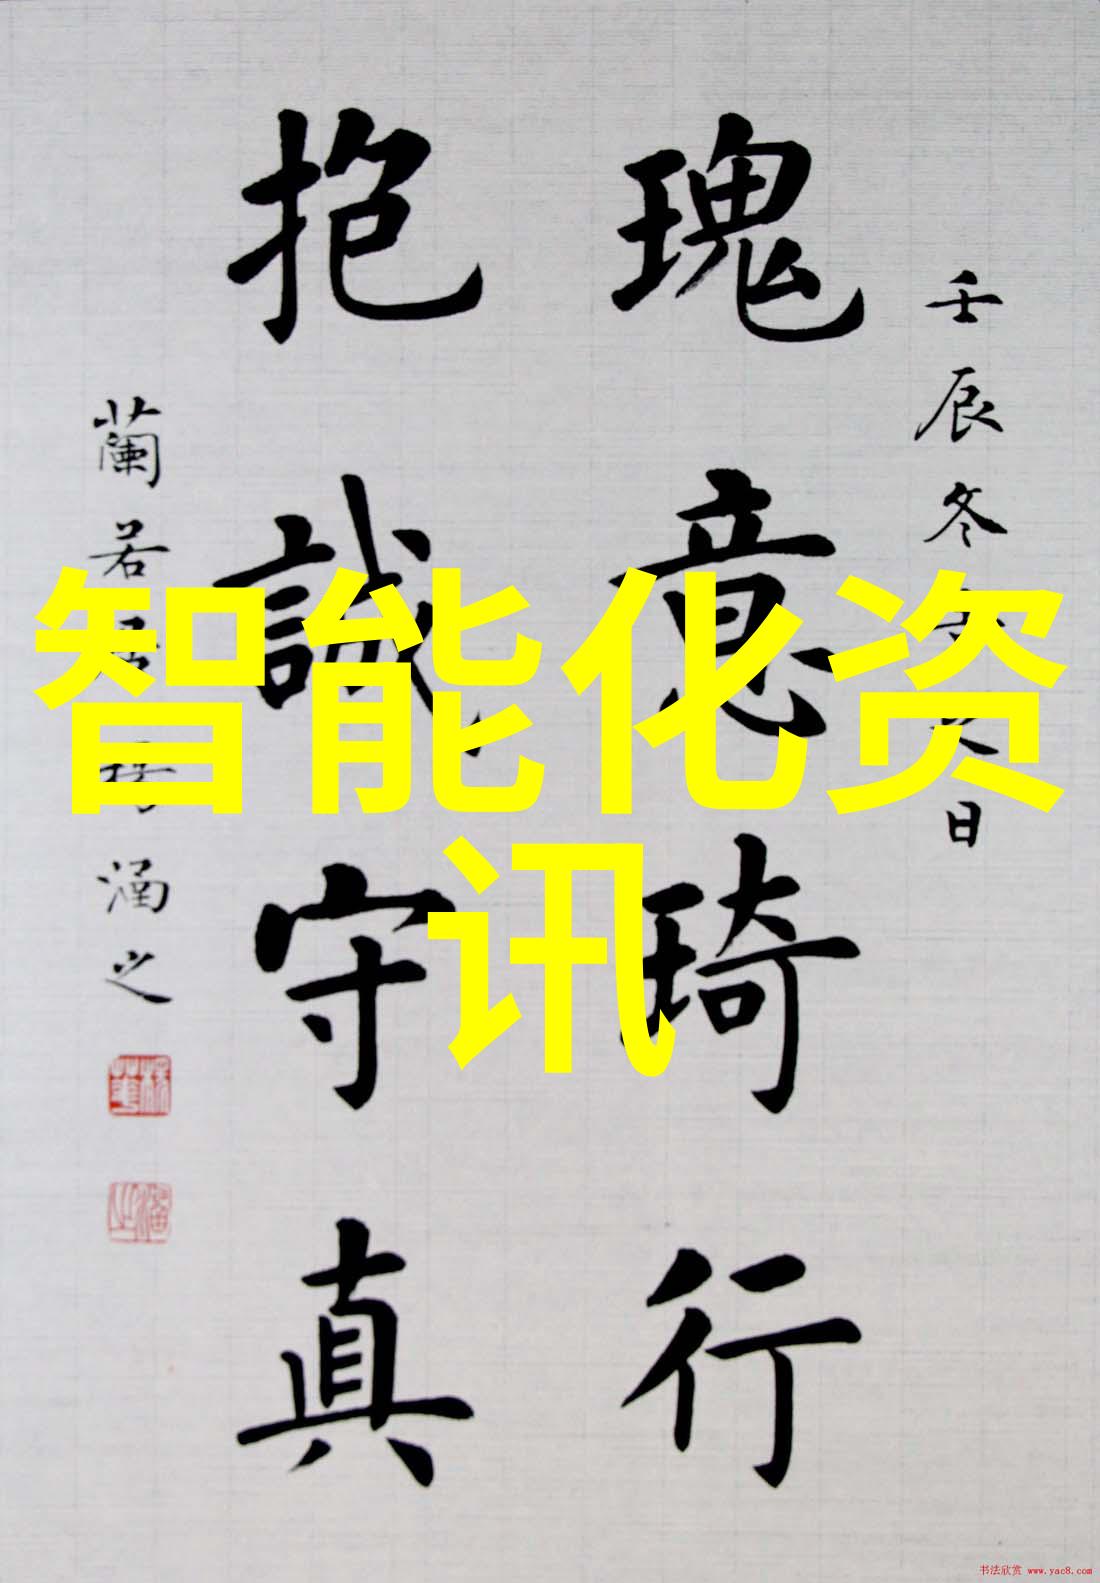 壬辰冬
日
瑰意琦行
抱誠守真
蘭若
涵之
智能化资
讯
书法欣赏 www.yac8.com